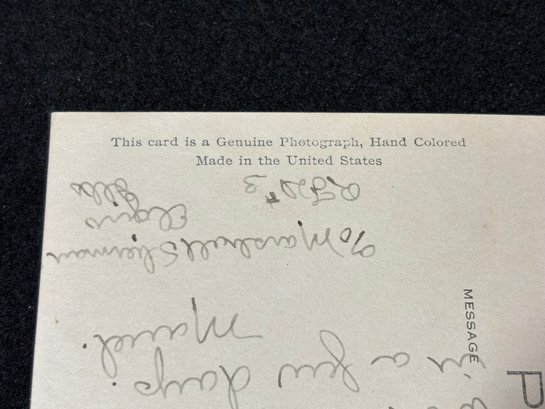 This card is a Genuine Photograph, Hand Colored
Made in the United States
MESSAGE
P
in a few days
Maud.
% Marshall Sherman
Elgin
R.F.D. #3
Ills